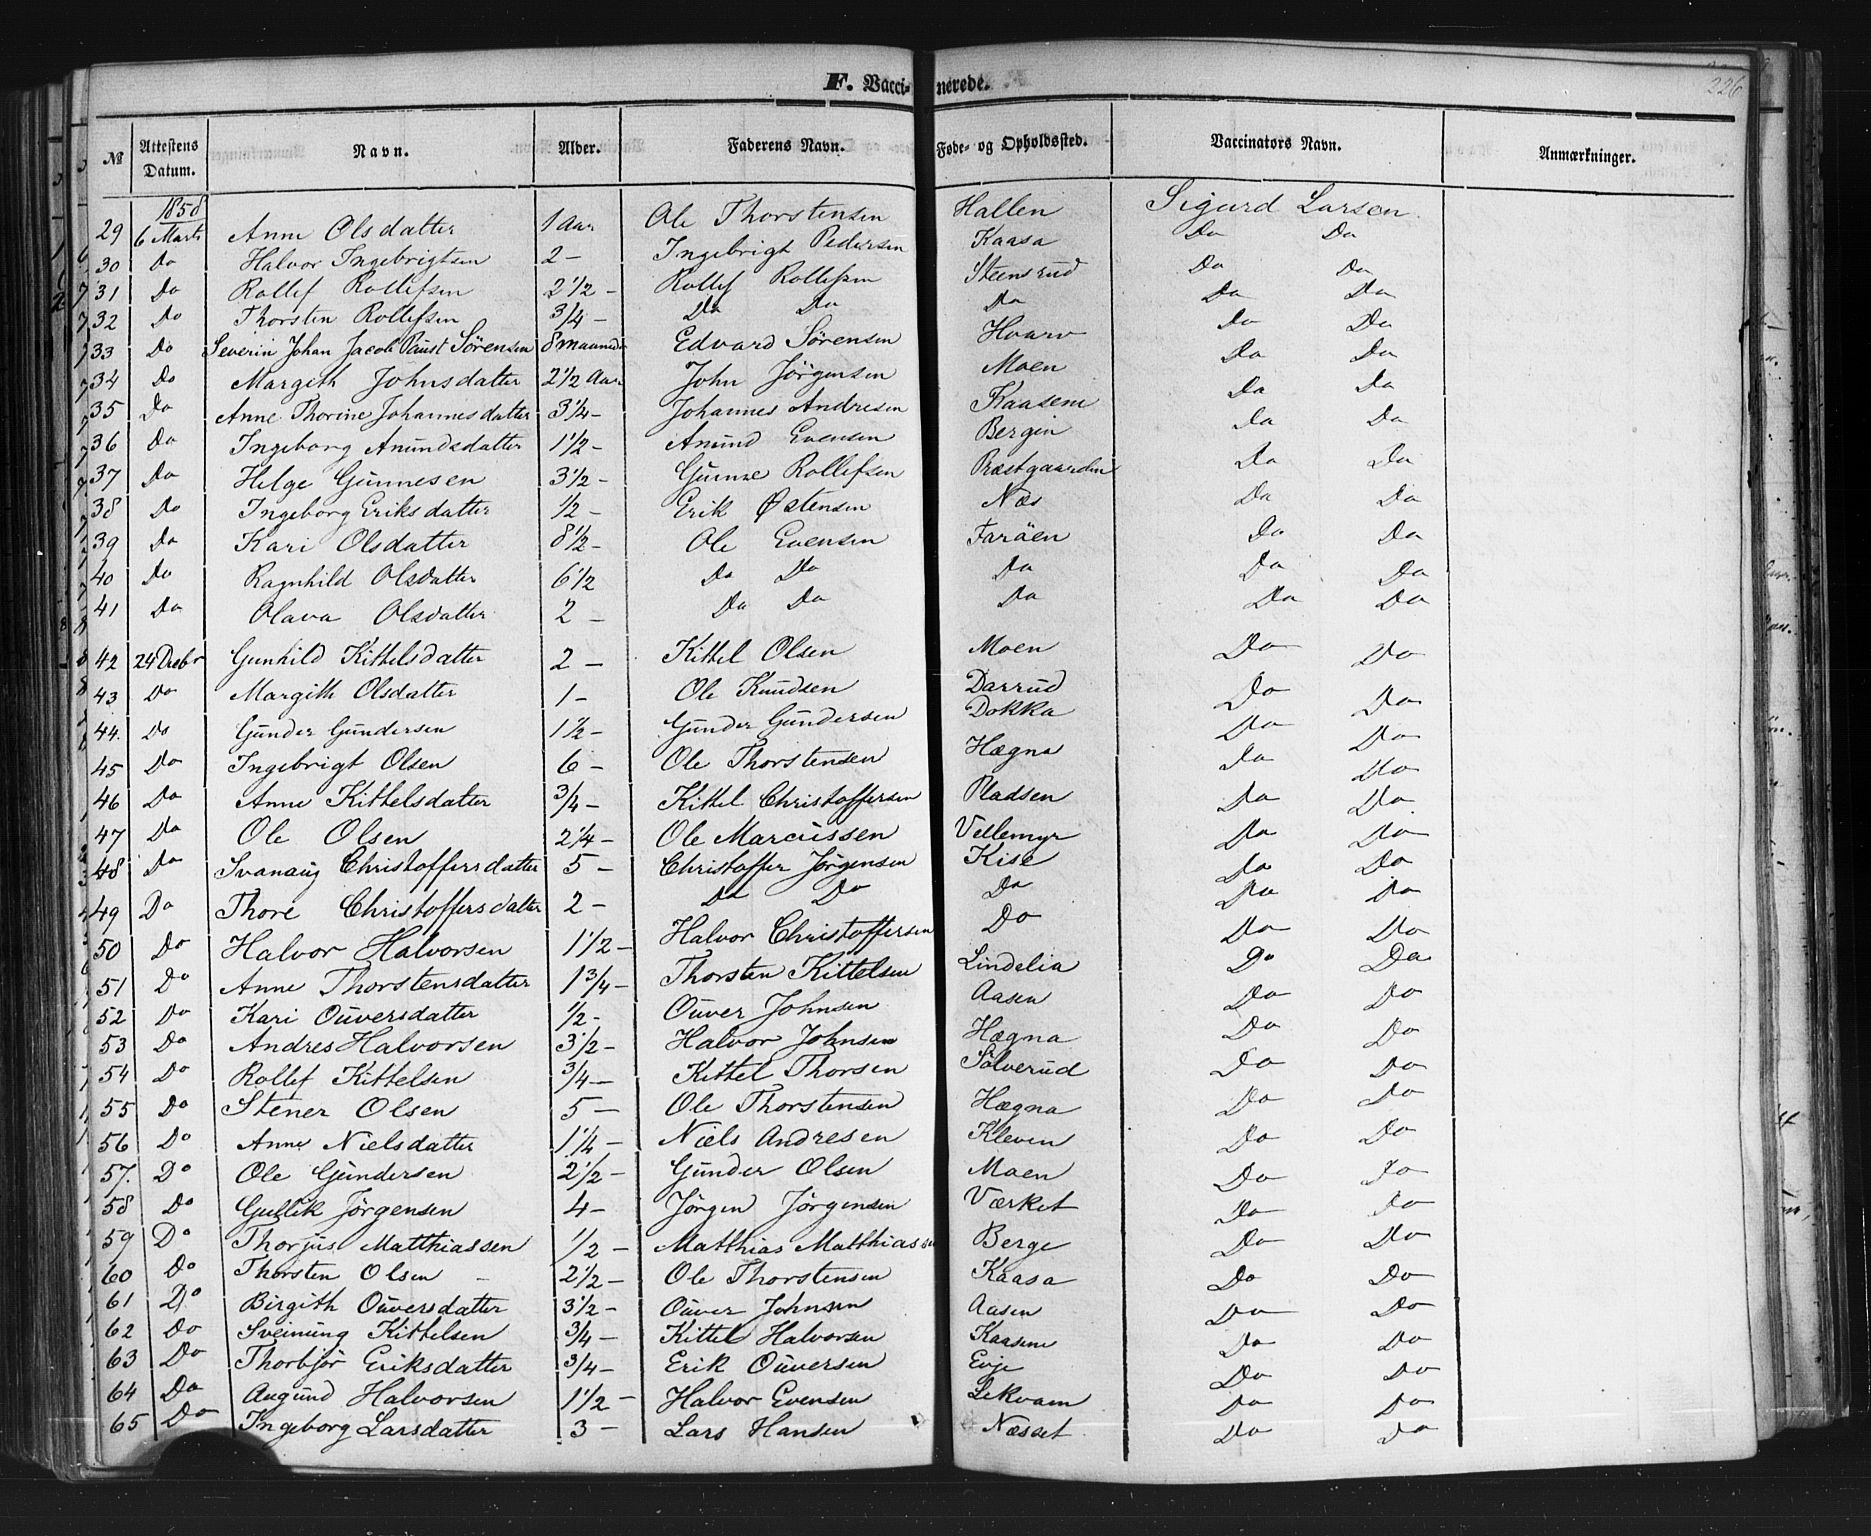 F. Vaccinerede.
226
№ Attestens Datum. Navn. Alder. Faderens Navn. Føde- og Opholdssted. Vaccinators Navn. Anmærkninger.
1858
29 6 Marts Anne Olsdatter 1 Aar Ole Thorstensen Hallen Sigurd Larsen
30 Do Halvor Ingebrigtsen 2 - Ingebrigt Pedersen Kaasa Do Do
31 Do Rollef Rollefsen 2 1/2 - Rollef Rollefsen Steensrud Do Do
32 Do Thorsten Rollefsen 3/4 - Do Do Do Do Do
33 Do Severin Johan Jacob Paust Sørensen 8 maaneder Edvard Sørensen Hvarv Do Do
34 Do Margith Johnsdatter 2 1/2 Aar John Jørgensen Moen Do Do
35 Do Anne Thorine Johannesdatter 3/4 - Johannes Andresen Kaasene Do Do
36 Do Ingeborg Anundsdatter 1 1/2 - Anund Evensen Bergin Do Do
37 Do Helge Gunnesen 3 1/2 - Gunne Rollefsen Præstgaarden Do Do
38 Do Ingeborg Eriksdatter 1/2 - Erik Østensen Næs Do Do
39 Do Kari Olsdatter 8 1/2 - Ole Evensen Faröen Do Do
40 Do Ragnhild Olsdatter 6 1/2 Do Do Do Do Do
41 Do Olava Olsdatter 2 - Do Do Do Do Do
42 24 Decbr Gunhild Kittelsdatter 2 - Kittel Olsen Moen Do Do
43 Do Margith Olsdatter 1 - Ole Knudsen Darrud Do Do
44. Do Gunder Gundersen 1 1/2 - Gunder Gundersen Dokka Do Do
45 Do Ingebrigt Olsen 6 - Ole Thorstensen Hægna Do Do
46 Do Anne Kittelsdatter 3/4 - Kittel Christoffersen Pladsen Do Do
47 Do Ole Olsen 2 1/4 - Ole Marcussen Vellemyr Do Do
48 Do Svanaug Christoffersdatter 5 - Christoffer Jørgensen Kise Do Do
49 Do Thore Christoffersdatter 2 - Do Do Do Do Do
50 Do Halvor Halvorsen 1 1/2 - Halvor Christoffersen Do Do Do
51 Do Anne Thorstensdatter 1 3/4 - Thorsten Kittelsen Lindelia Do Do
52 Do Kari Ouversdatter 1/2 - Ouver Johnsen Aasen Do Do
53 Do Andres Halvorsen 3 1/2 - Halvor Johnsen Hægna Do Do
54 Do Rollef Kittelsen 3/4 - Kittel Thorsen Sølverud Do Do
55 Do Stener Olsen 5 - Ole Thorstensen Hægna Do Do
56 Do Anne Nielsdatter 1 1/4 - Niels Andresen Kleven Do Do
57. Do Ole Gundersen 2 1/2 - Gunder Olsen Moen Do Do
58 Do Gullik Jørgensen 4 - Jørgen Jørgensen Værket Do Do
59 Do Thorjus Matthiassen 1/2 - Matthias Matthiassen Berge Do Do
60 Do Thorsten Olsen - 2 1/2 - Ole Thorstensen Kaasa Do Do
61 Do Birgith Ouversdatter 3 1/2 - Ouver Johnsen Aasen Do Do
62 Do Sveinung Kittelsen 3/4 - Kittel Halvorsen Kaasene Do Do
63 Do Thorbjør Eriksdatter 3/4 - Erik Ouversen Evje Do Do
64 Do Augund Halvorsen 1 1/2 - Halvor Evensen Lekvam Do Do
65 Do Ingeborg Larsdatter 3 - Lars Hansen Næsset Do Do